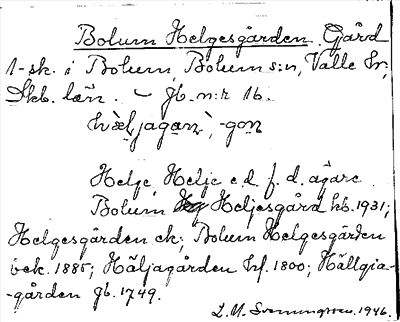 Bolum Helgesgården. Gård
1-sk. i Bolum, Bolum s:n, Valle hr,
Skb. län. — Jb. n:r 16.
hæ̀ljagan`, -gon
Helge, Helje e.d. f.d. ägare
Bolum Heljesgård kb. 1931;
Helgesgården ek; Bolum Helgesgården
bek. 1885; Häljagården hf. 1800; Hällgia-
-gården Jb. 1749.
L.M. 1946.